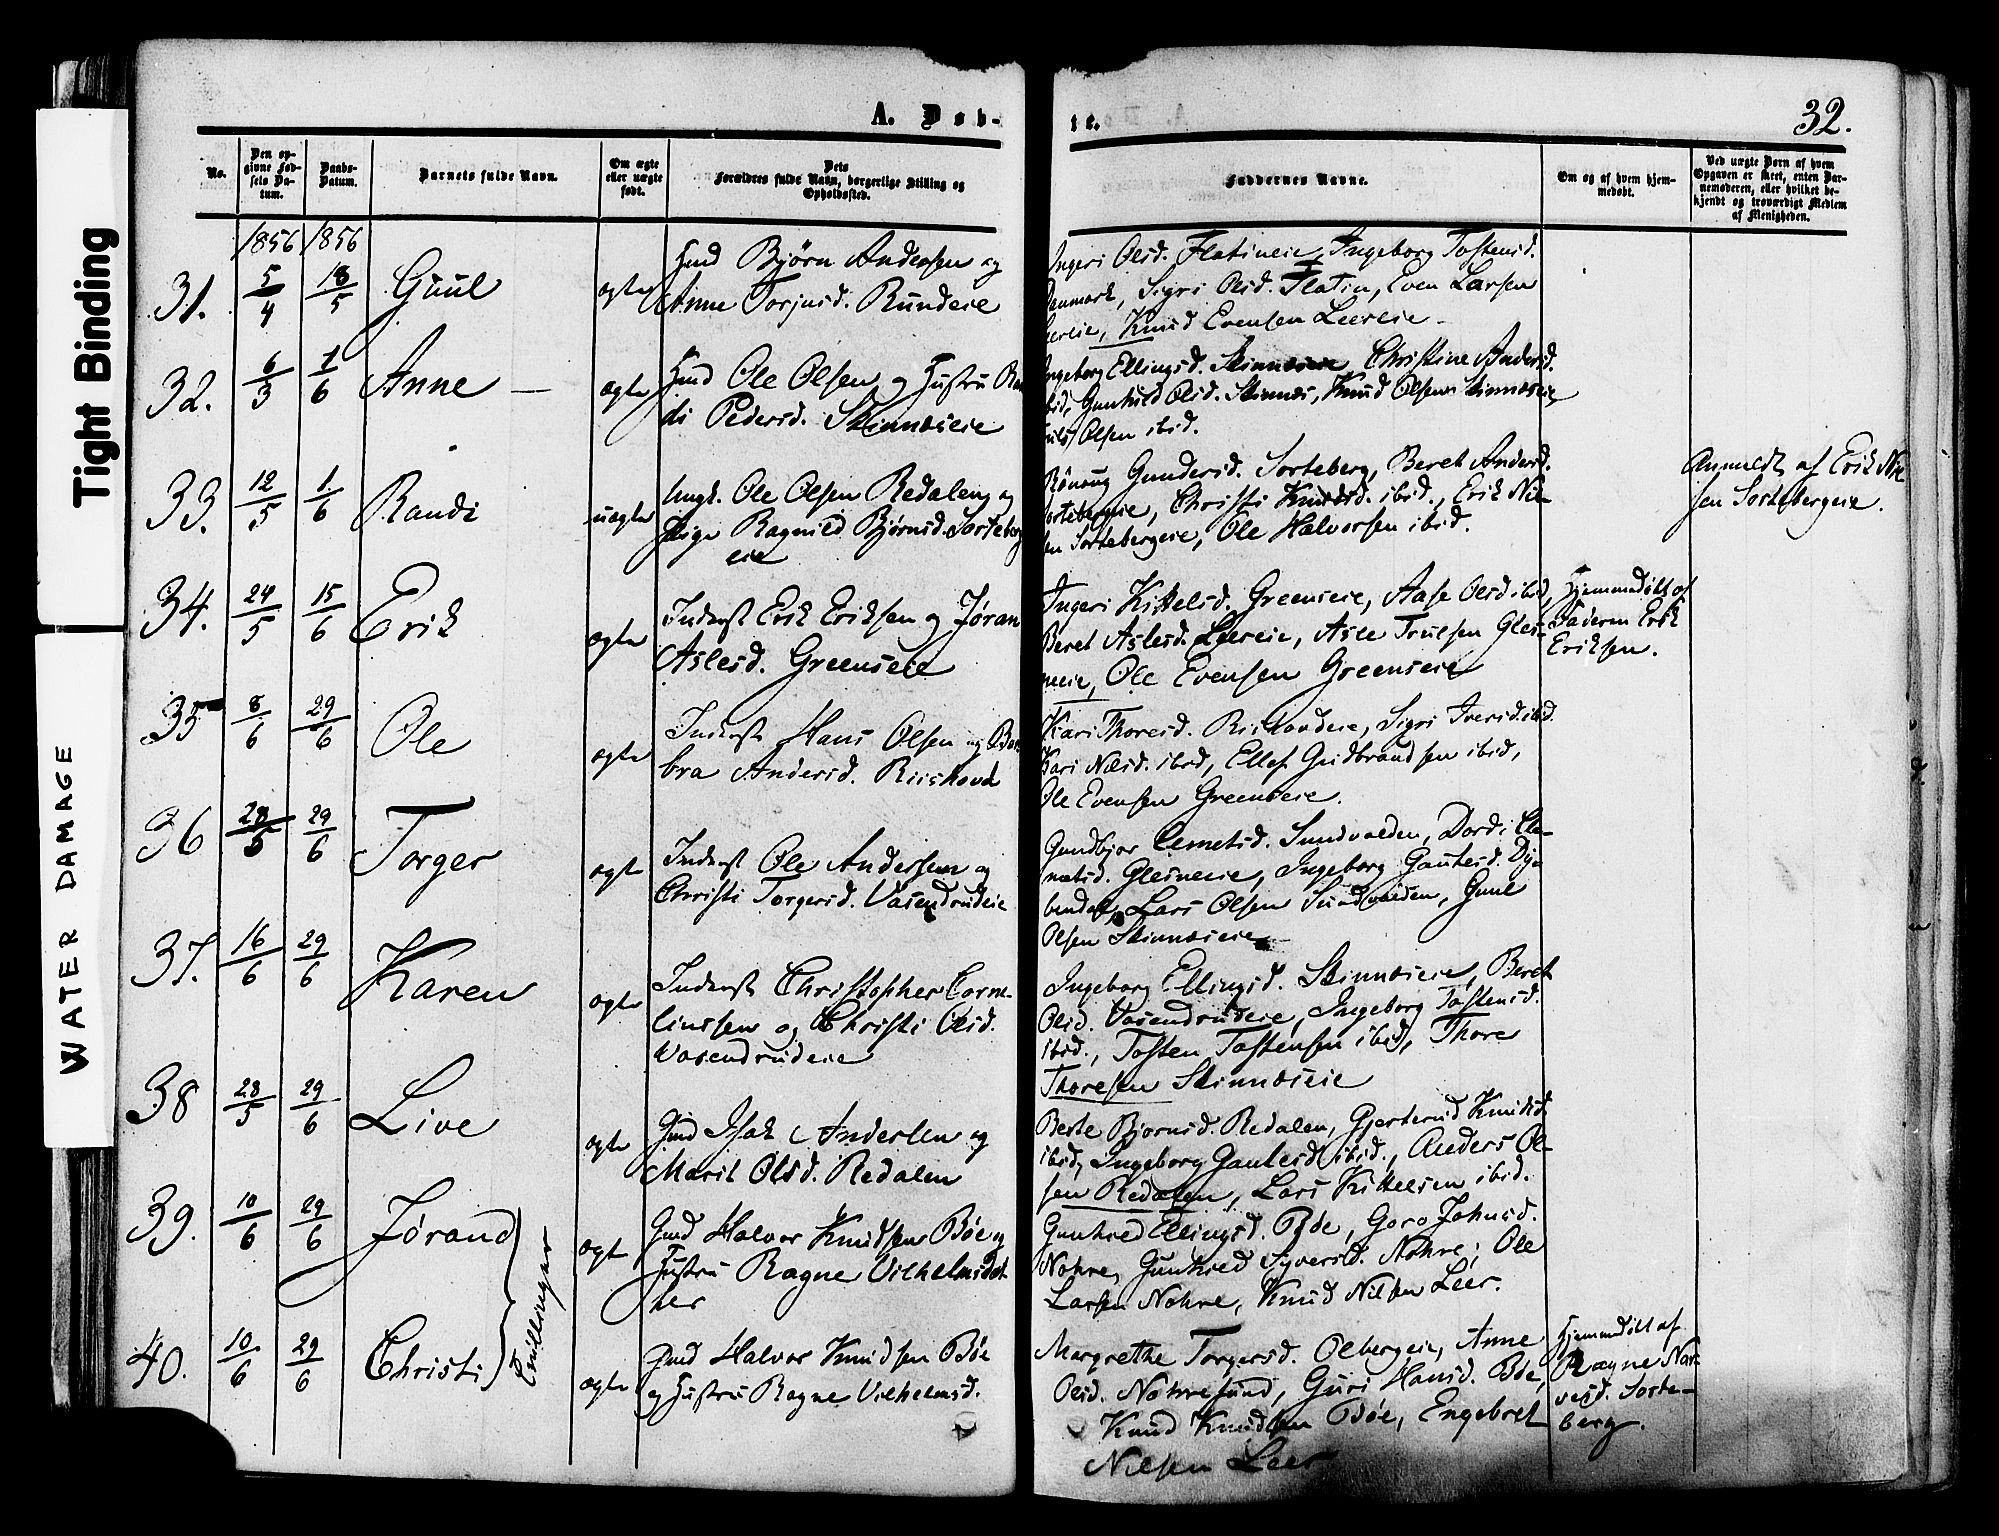 Tight Binding
WATER DAMAGE
A. Døb-
te.
32.
No.
Den op-
givne Fød-
sels Da-
tum.
Daabs-
Datum.
Barnets fulde Navn.
Om ægte
eller uægte
født.
Dets
Forældres fulde Navn, borgerlige Stilling og
Opholdssted.
Faddernes Navne.
Om og af hvem hjem-
medøbt.
Ved uægte Børn af hvem
Opgaven er skeet, enten Bar-
nemoderen, eller hvilket be-
kjendt og troværdigt Medlem
af Menigheden.
1856 1856
31. 5/4 18/5 Guul ægte
Gmd Bjørn Andersen og
Anne Torjusd. Rundeie
Ingeri Olsd. Flatineie, Ingeborg Tostensd.
Denmark, Sigri Olsd. Flatin, Even Larsen
Leereie, Knud Evensen Leereie
32. 6/3 1/6 Anne ægte
Gmd Ole Olsen og Hustru Ran
di Pedersd. Skinnæseie
Ingeborg Ellingsd. Skinnæseie, Christine Andersd.
ibid, Gunhild Olsd. Skinnæs, Knud Olsen Skinnæseie,
Olsen ibid.
33. 12/5 1/6 Randi uægte
Ungk. Ole Olsen Redalen og
Pige Ragnild Bjørnsd. Sorteberg
eie
Rønnug Gundersd. Sorteberg, Beret Andersd.
Sortebergeie, Christi Knudsd. ibid., Erik Niel-
sen Sortebergeie, Ole Halvorsen ibid.
Anmeldt af Erik Niel
sen Sortebergeie.
34. 24/5 15/6 Erik ægte
Inderst Erik Eriksen og Jøran
Aslesd. Greenseie
Ingeri Kittelsd. Greenseie, Aase Olsd ibid,
Beret Aslesd. Leereie, Asle Trulsen Gles-
neeie, Ole Evensen Greenseie
Hjemmedøbt af
Faderen Erik
Eriksen.
35 8/6 29/6 Ole ægte
Inderst Hans Olsen og Bar
bra Andersd. Riishovd
Kari Thoresd. Riishovdeie, Sigri Iversd. ibid.
Kari Nilsd. ibid, Ellef Gudbrandsen ibid,
Ole Evensen Greenseie.
36 28/5 29/6 Torger ægte
Inderst Ole Andersen og
Christi Torgersd. Vasendrudeie
Gundbjor Clemetsd. Sundvolden, Dordi Cle-
metsd. Glesneeie, Ingeborg Gautesd. Dy-
bendal, Lars Olsen Sundvolden, Guul
Olsen Skinnæseie
37. 16/6 29/6 Karen ægte
Inderst Christopher Corne-
liussen og Christi Olsd.
Vasendrudeie
Ingeborg Ellingsd. Skinnæseie, Beret
Olsd. Vasendrudeie, Ingeborg Tostensd.
ibid., Tosten Tostensen ibid, Thore
Thoresen Skinnæseie
38 28/5 29/6 Live ægte
Gmd Isak Andersen og
Marit Olsd. Redalen
Berte Bjornsd. Redalen, Gjertrud Knudsd.
ibid, Ingeborg Gautesd ibid., Anders Ol-
sen Redalen, Lars Kittelsen ibid.
39. 10/6 29/6 Jørand ægte
Tvillinger
Gmd Halvor Knudsen Bøe og
Hustru Ragne Vilhelmsdat
ter
Gunhild Ellingsd. Bøe, Goro Johnsd.
Nohre, Gunhild Syversd. Nohre, Ole
Larsen Nohre, Knud Nilsen Leer.
40. 10/6 29/6 Christi ægte
Gmd Halvor Knudsen Bøe
og Hustru Ragne Vilhelmsd.
Margrethe Torgersd. Olbergeie, Anne
Olsd. Nohresund, Guri Hansd. Bøe,
Knud Knudsen Bøe, Engebret
Nilsen Leer
Hjemmedøbt af
Ragne Nar-
vesd. Sorte-
berg.